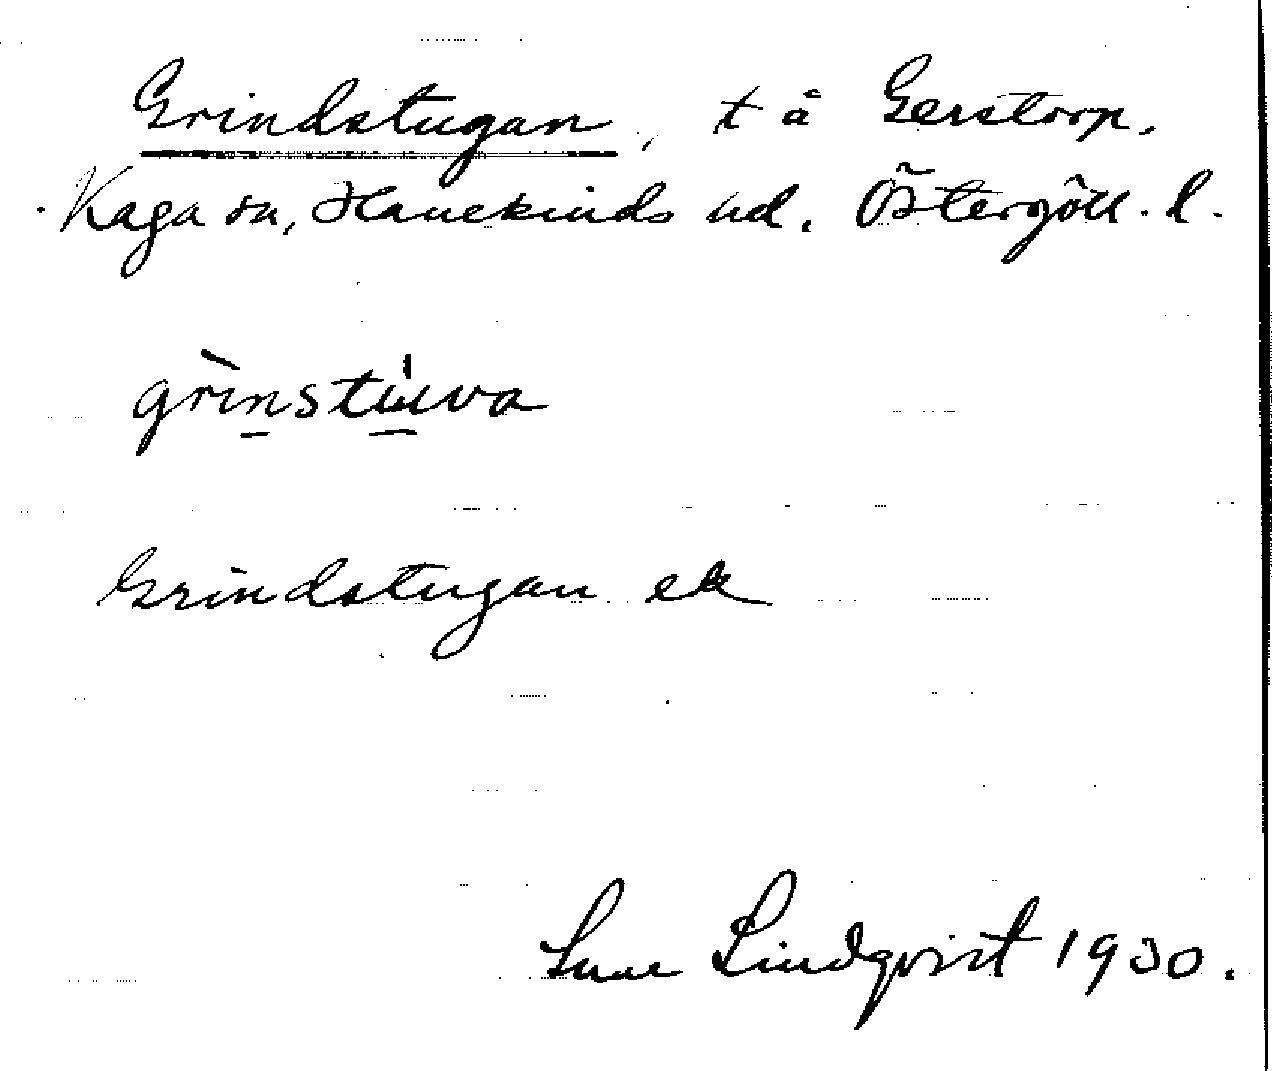 Grindstugan, t å Gerstorp,
Kaga sn, Hanekinds hd. Östergötl. l.
grìnstu̇va
Grindstugan ek
Sune Lindqvist 1930.